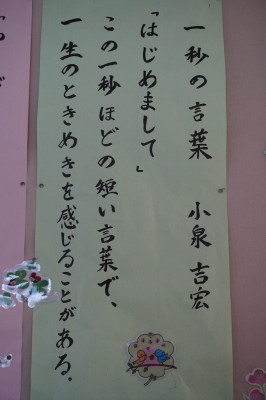 一秒の言葉　小泉 吉宏
「はじめまして」
この一秒ほどの短い言葉で、
一生のときめきを感じることがある.